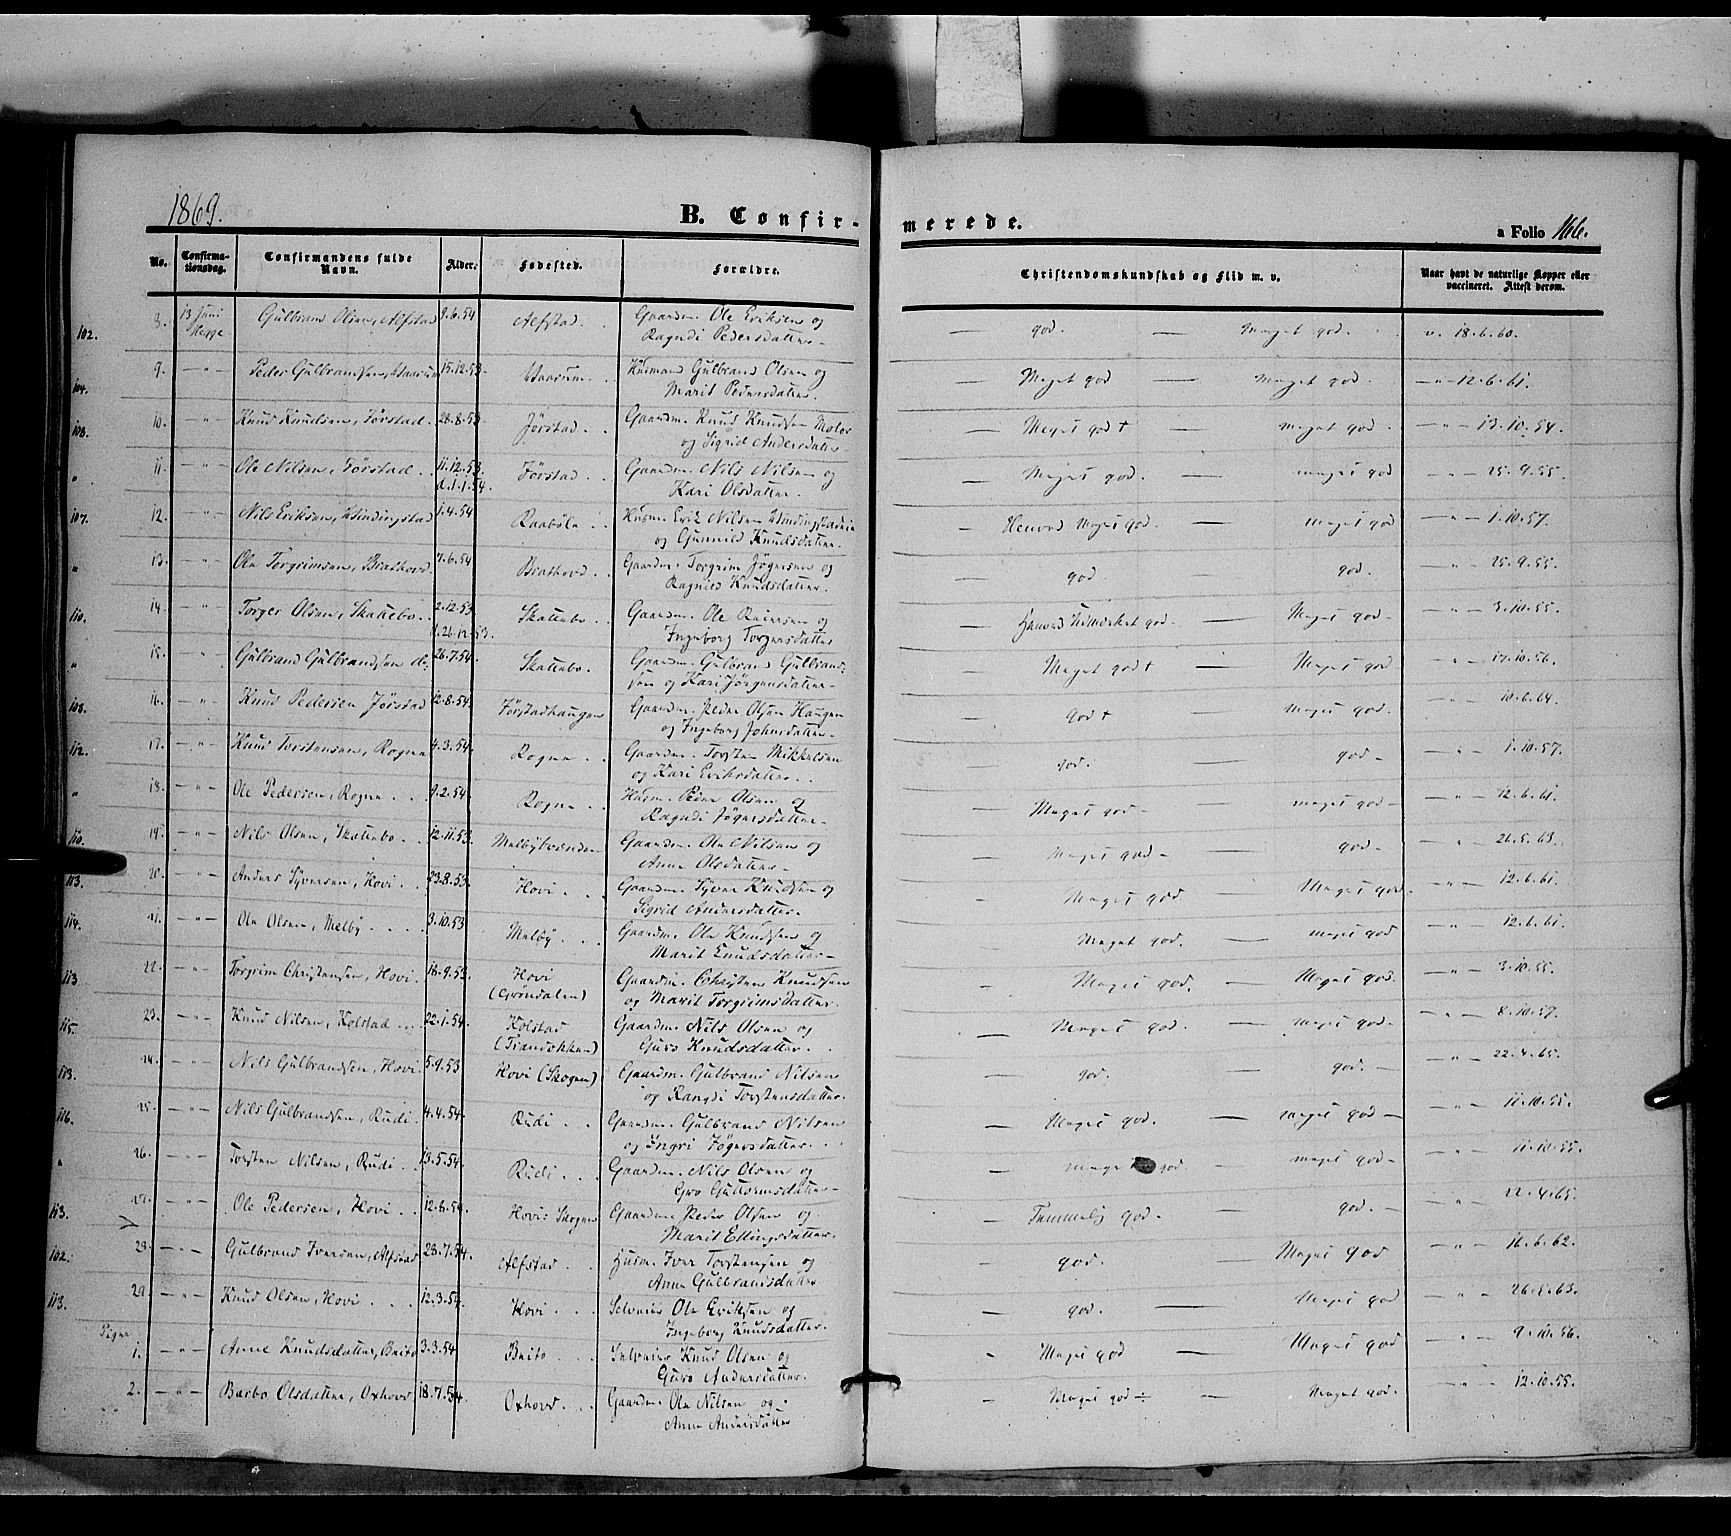 1869. B. Confirmerede. a Folio 166.
No. Confirmationsdag. Confirmandens fulde Navn. Alder. Fødested. Forældre. Christendomskundskab og Flid m. v. Naar havt de naturlige Kopper eller vaccineret. Attest derom.
102. 8. 13 Juni Hegge Gulbrand Olsen, Alfstad 9.6.54 Alfstad. Gaardm. Ole Eriksen og Ragndi Pedersdatter - god. — Meget god. v. 18.6.60.
104. 9. — " — Peder Gulbrandsen, 15.12.53 Husmand Gulbrand Olsen og Marit Pedersdatter. — Meget god — meget god. — " — 12.6.61.
108. 10. — " — Knud Knudsen, Jørstad. 28.8.53 Jørstad. Gaardm. Knud Knudsen Moler og Sigrid Andersdatter - — Meget god + — meget god. — " — 13.10.54.
" 11. — " — Ole Nilsen, Jørstad. 11.12.53. d. 1.1.54. Jørstad. Gaardm. Nils Nilsen og Kari Olsdatter. — Meget god. meget god — " — 25.9.55.
107. 12. — " — Nils Eriksen, Windingstad 1.4.54 Raabøle Husm. Erik Nilsen og Gunnild Knudsdatter. — Henved Meget god. — meget god — " — 1.10.57.
" 13. — " — Ole Torgrimsen, Brathovd. 7.6.54 Brathovd. Gaardm. Torgrim og Ragnild Knudsdatter. — god. — god. — " — 25.9.55.
110. 14. — " — Torger Olsen, Skattebo. 2.12.53 d. 26.12.53. Skattebo. Gaardm. Ole og Ingeborg Torgersdatter — Henved Udmærket god - Meget god — " — 3.10.55.
" 15. — " — Gulbrand Gulbrandsen do 26.7.54. Skattebo. Gaardm. Gulbrand Gulbrandsen og Kari Jørgensdatter - — Meget god + — Meget god — " — 17.10.56.
108. 16. — " — Knud Pedersen Jørstad 12.8.54. Jørstadhaugen Gaardm. Peder Olsen Haugen og Ingeborg Johnsdatter - — god + — Meget god. 10.6.64.
112. 17. — " — Knud Torstensen, Rogne 4.3.54. Rogne Gaardm. Torsten Mikkelsen og Kari Eriksdatter. — god. — god - — " — 1.10.57.
" 18. — " — Ole Pedersen, Rogne. 9.2.54. Rogne Husm. Peder Olsen og Ragndi — Meget god - meget god — — " — 12.6.61.
110. 19. — " — Nils Olsen, Skattebo. 12.11.53. Gaardm. Ole Nilsen og Anne Olsdatter - — Meget god - god - — " — 26.5.63.
113. 20. — " — Anders Syversen, Hovi. 23.8.53 Hovi. Gaardm. Syver Knudsen og Sigrid Andersdatter. — Meget god. Meget god. — " — 12.6.61.
114. 21. — " — Ole Olsen, Melby 3.10.53 Melby. Gaardm. Ole Knudsen og Marit Knudsdatter - — Meget god. — meget god — " — 12.6.61.
113 22. — " — Torgrim Christensen, Hovi. 18.9.53 Hovi (Grøndalen) Gaardm. Christen Knudsen og Marit Torgrimsdatter. — Meget god. — Meget god. — " — 3.10.55.
115. 23. — " — Knud Nilsen, Kolstad 22.1.54 Kolstad Gaardm. Nils Olsen og Guro Knudsdatter. — Meget god. — meget god. — " — 8.10.57.
113. 24. — " — Nils Gulbrandsen, Hovi 5.9.53 Hovi (Skogen) Gaardm. Gulbrand Nilsen og Rangdi Torstensdatter. — god. — god. — — " — 22.4.65.
116. 25. — " — Nils Gulbrandsen, Rudi. 4.4.54. Rudi. Gaardm. Gulbrand Nilsen og Ingri — Meget god. — meget god — — " — 11.10.55.
" 26. — " — Torsten Nilsen, Rudi. 13.5.54. Rudi. Gaardm. Nils Olsen og Gro Guttormsdatter — — god. — meget god — — " — 11.10.55.
113. 27. — " — Ole Pedersen, Hovi. 12.6.54. Hovi: Skogen Gaardm. Peder Olsen og Marit Ellingsdatter. — Temmelig god. — god. — — " — 22.4.65.
102. 28. — " — Gulbrand Iversen, Alfstad 23.7.54. Alfstad. Husm. Iver Torstensen og Anne Gulbrandsdatter — god. — Meget god — " — 16.6.62.
113. 29. — " — Knud Olsen, Hovi. 12.3.54. Hovi. Selveier Ole Eriksen og Ingeborg Knudsdatter. — god. — Meget god — " — 26.5.63.
Piger
1. — " — Anne Knudsdatter, Beito 3.3.54 Beito. Selveier Knud Olsen og Guro Andersdatter. - Meget god — Meget god — " — 9.10.56.
2. — " — Barbo Olsdatter, Oxhovd 18.7.54. Oxhovd. Gaardm. Ole Nilsen og Anne Andersdatter — Meget god ÷ — Meget god. — " — 12.10.55.